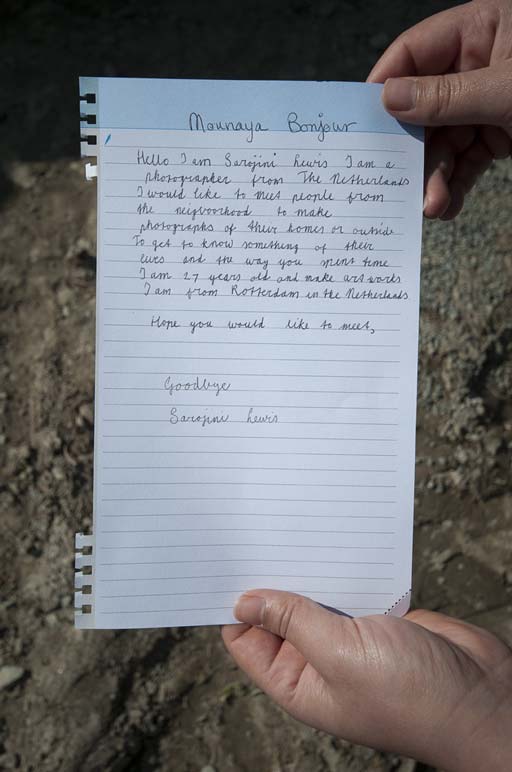 Mounaya Bonjour
Hello I am Sarojini Lewis I am a
photographer from The Netherlands
I would like to meet people from
the neigvorhood to make
photographs of their homes or outside
To get to know something of their
lives and the way you spent time
I am 27 years old and make artworks
I am from Rotterdam in the Netherlands
Hope you would like to meet,
Goodbye
Sarojini Lewis